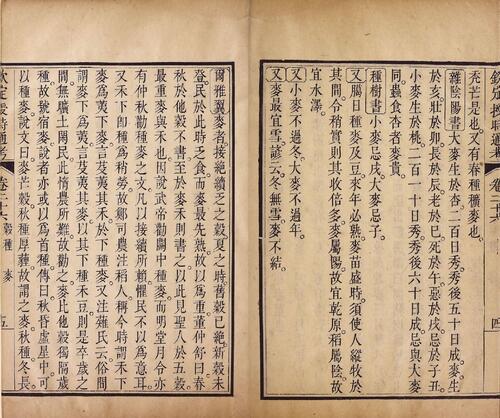 禿芒是也。又有春種穬麥也。
雜陰陽書大麥生於杏。二百日秀。秀後五十日成。麥生
於亥。壯於卯。長於辰。老於巳。死於午。惡於戌。忌於子丑。
小麥生於桃。二百一十日秀。秀後六十日成。忌與大麥
同。蟲食杏者麥貴。
種樹書小麥忌戌。大麥忌子。
又臘日種麥及豆。來年必熟。麥苗盛時。須使人縱牧於
其間。令稍實。則其收倍多。麥屬陽。故宜乾原。稻屬陰。故
宜水澤。
又小麥不過冬。大麥不過年。
又麥最宜雪。諺云。冬無雪。麥不結。
爾雅翼麥者。接絕續乏之穀。夏之時。舊穀已絕。新穀未
登。民於此時乏食。而麥最先熟。故以爲重。董仲舒曰。春
秋於他穀不書。至於麥禾不成則書之。以此見聖人於五穀。
最重麥與禾也。因說武帝勸關中種麥。而明堂月令亦
有仲秋勸種麥之文。凡以接續所賴。懼民不以爲意耳。
又禾下卽種。爲稍勞。故鄭司農注稻人。稱今時謂禾下
麥爲荑下麥。言芟荑其禾。於下種麥。又注薙氏云。俗間
謂麥下爲荑下。言芟荑其麥。以其下種禾豆。則是卒歲之
間。無曠土閒民。此惰農所難。故勸之。麥比他穀獨隔歲
種。故號宿麥。說者亦或以爲首種。傳曰。秋昏虛星中。可
以種麥。說文曰。麥芒穀。秋種厚薶。故謂之麥。秋種冬長。
欽定授時通考 卷二十六 穀種 麥 五